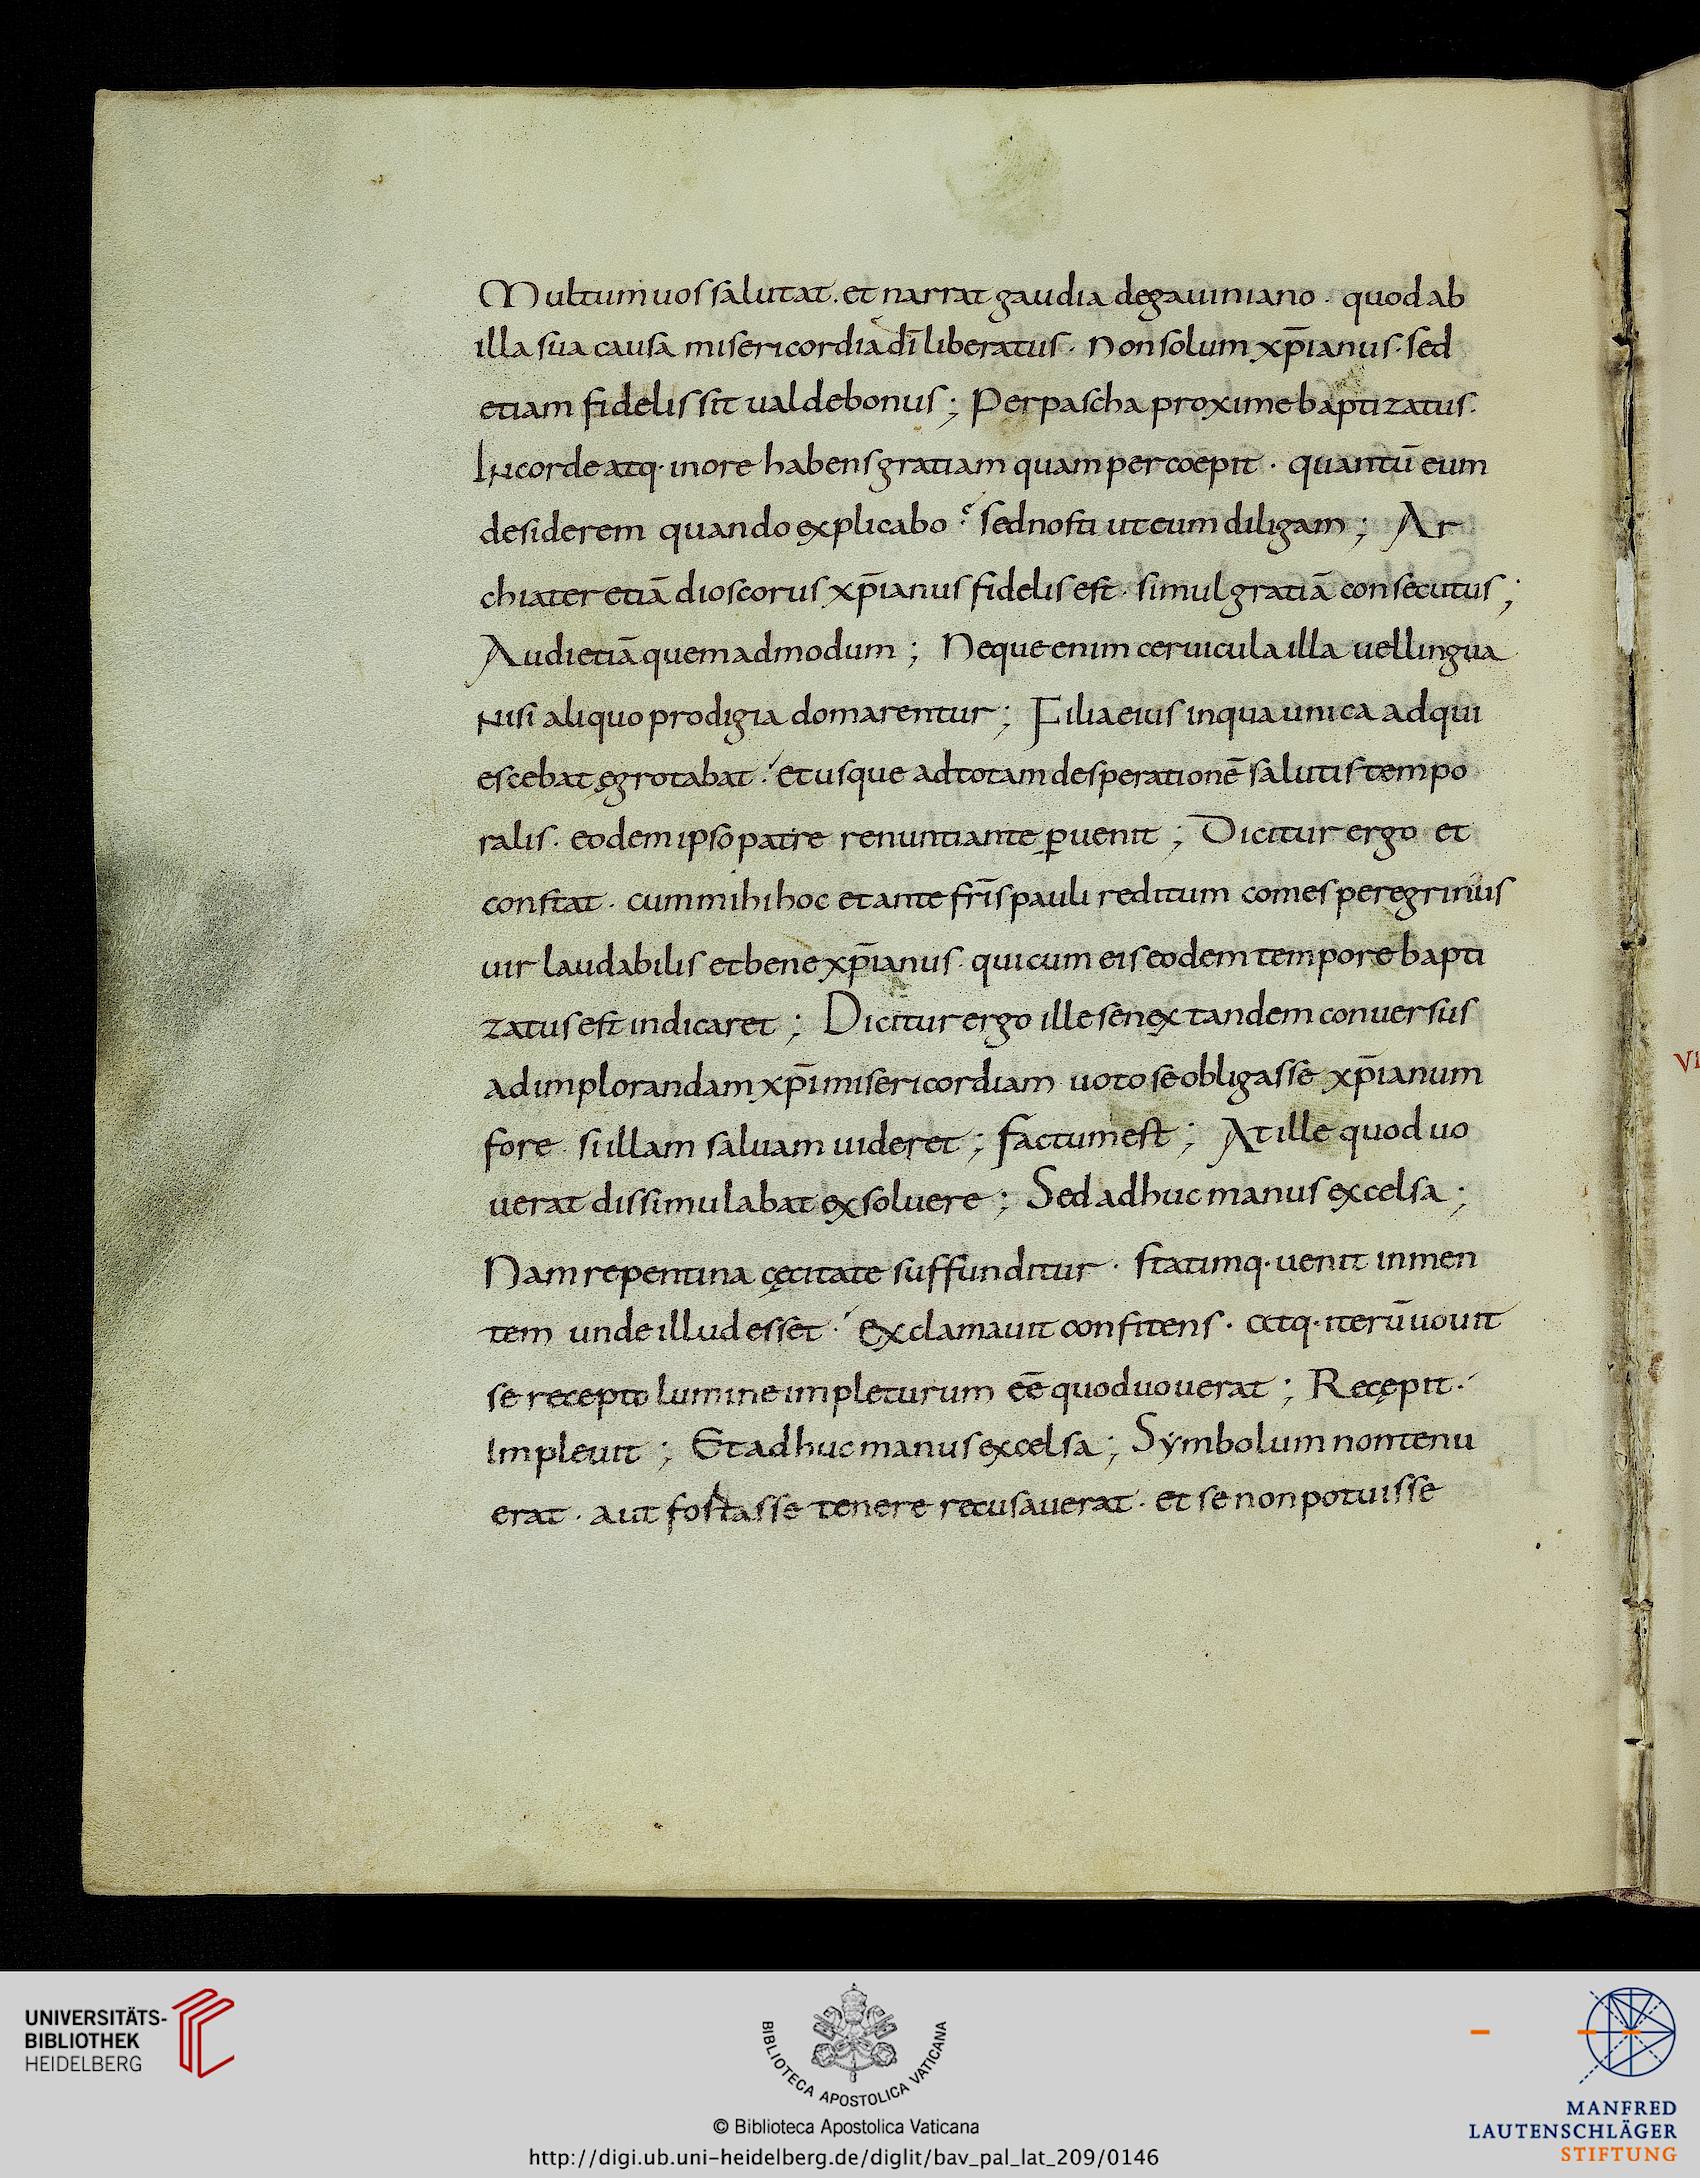 Multum uos salutat. et narrat gaudia de gauiniano · quod ab
illa sua causa misericordia dī liberatus · Non solum xp̄ianus · sed
etiam fidelis sit ualde bonus ; Per pascha proxime baptizatus ·
In corde atq· in ore habens gratiam quam percoepit · quantū eum
desiderem quando explicabo ? sed nosti ut eum diligam ; Ar
chiater etiā dioscorus xp̄ianus fidelis est · simul gratiā consecutus ;
Audi etiā quemadmodum ; Neque enim ceruicula illa uel lingua
Nisi aliquo prodigia domarentur ; Filia eius in qua unica adqui
escebat ęgrotabat ·' et usque ad totam desperationē salutis tempo
ralis · eodem ipso patre renuntiante ꝑuenit ; Dicitur ergo et
constat · cum mihi hoc et ante fr̄is pauli reditum comes peregrinus
uir laudabilis et bene xp̄ianus · qui cum eis eodem tempore bapti
zatus est indicaret ; Dicitur ergo ille senex tandem conuersus
ad implorandam xp̄i misericordiam uoto se obligasse xp̄ianum
fore · si illam saluam uideret ; factum est ; At ille quod uo
uerat dissimulabat exsoluere ; Sed adhuc manus excelsa ;
Nam repentina cęcitate suffunditur · statimq· uenit in men
tem unde illud esset ·' Exclamauit confitens · atq· iterū uouit
se recepto lumine impleturum eē quod uouerat ; Recępit ·'
Impleuit ; Et adhuc manus excelsa ; Symbolum non tenu
erat · aut fostasse tenere recusauerat · et se non potuisse
VI
UNIVERSITÄTS-
BIBLIOTHEK
HEIDELBERG
BIBLIOTECA APOSTOLICA VATICANA
© Biblioteca Apostolica Vaticana
http://digi.ub.uni-heidelberg.de/diglit/bav_pal_lat_209/0146
MANFRED
LAUTENSCHLÄGER
STIFTUNG